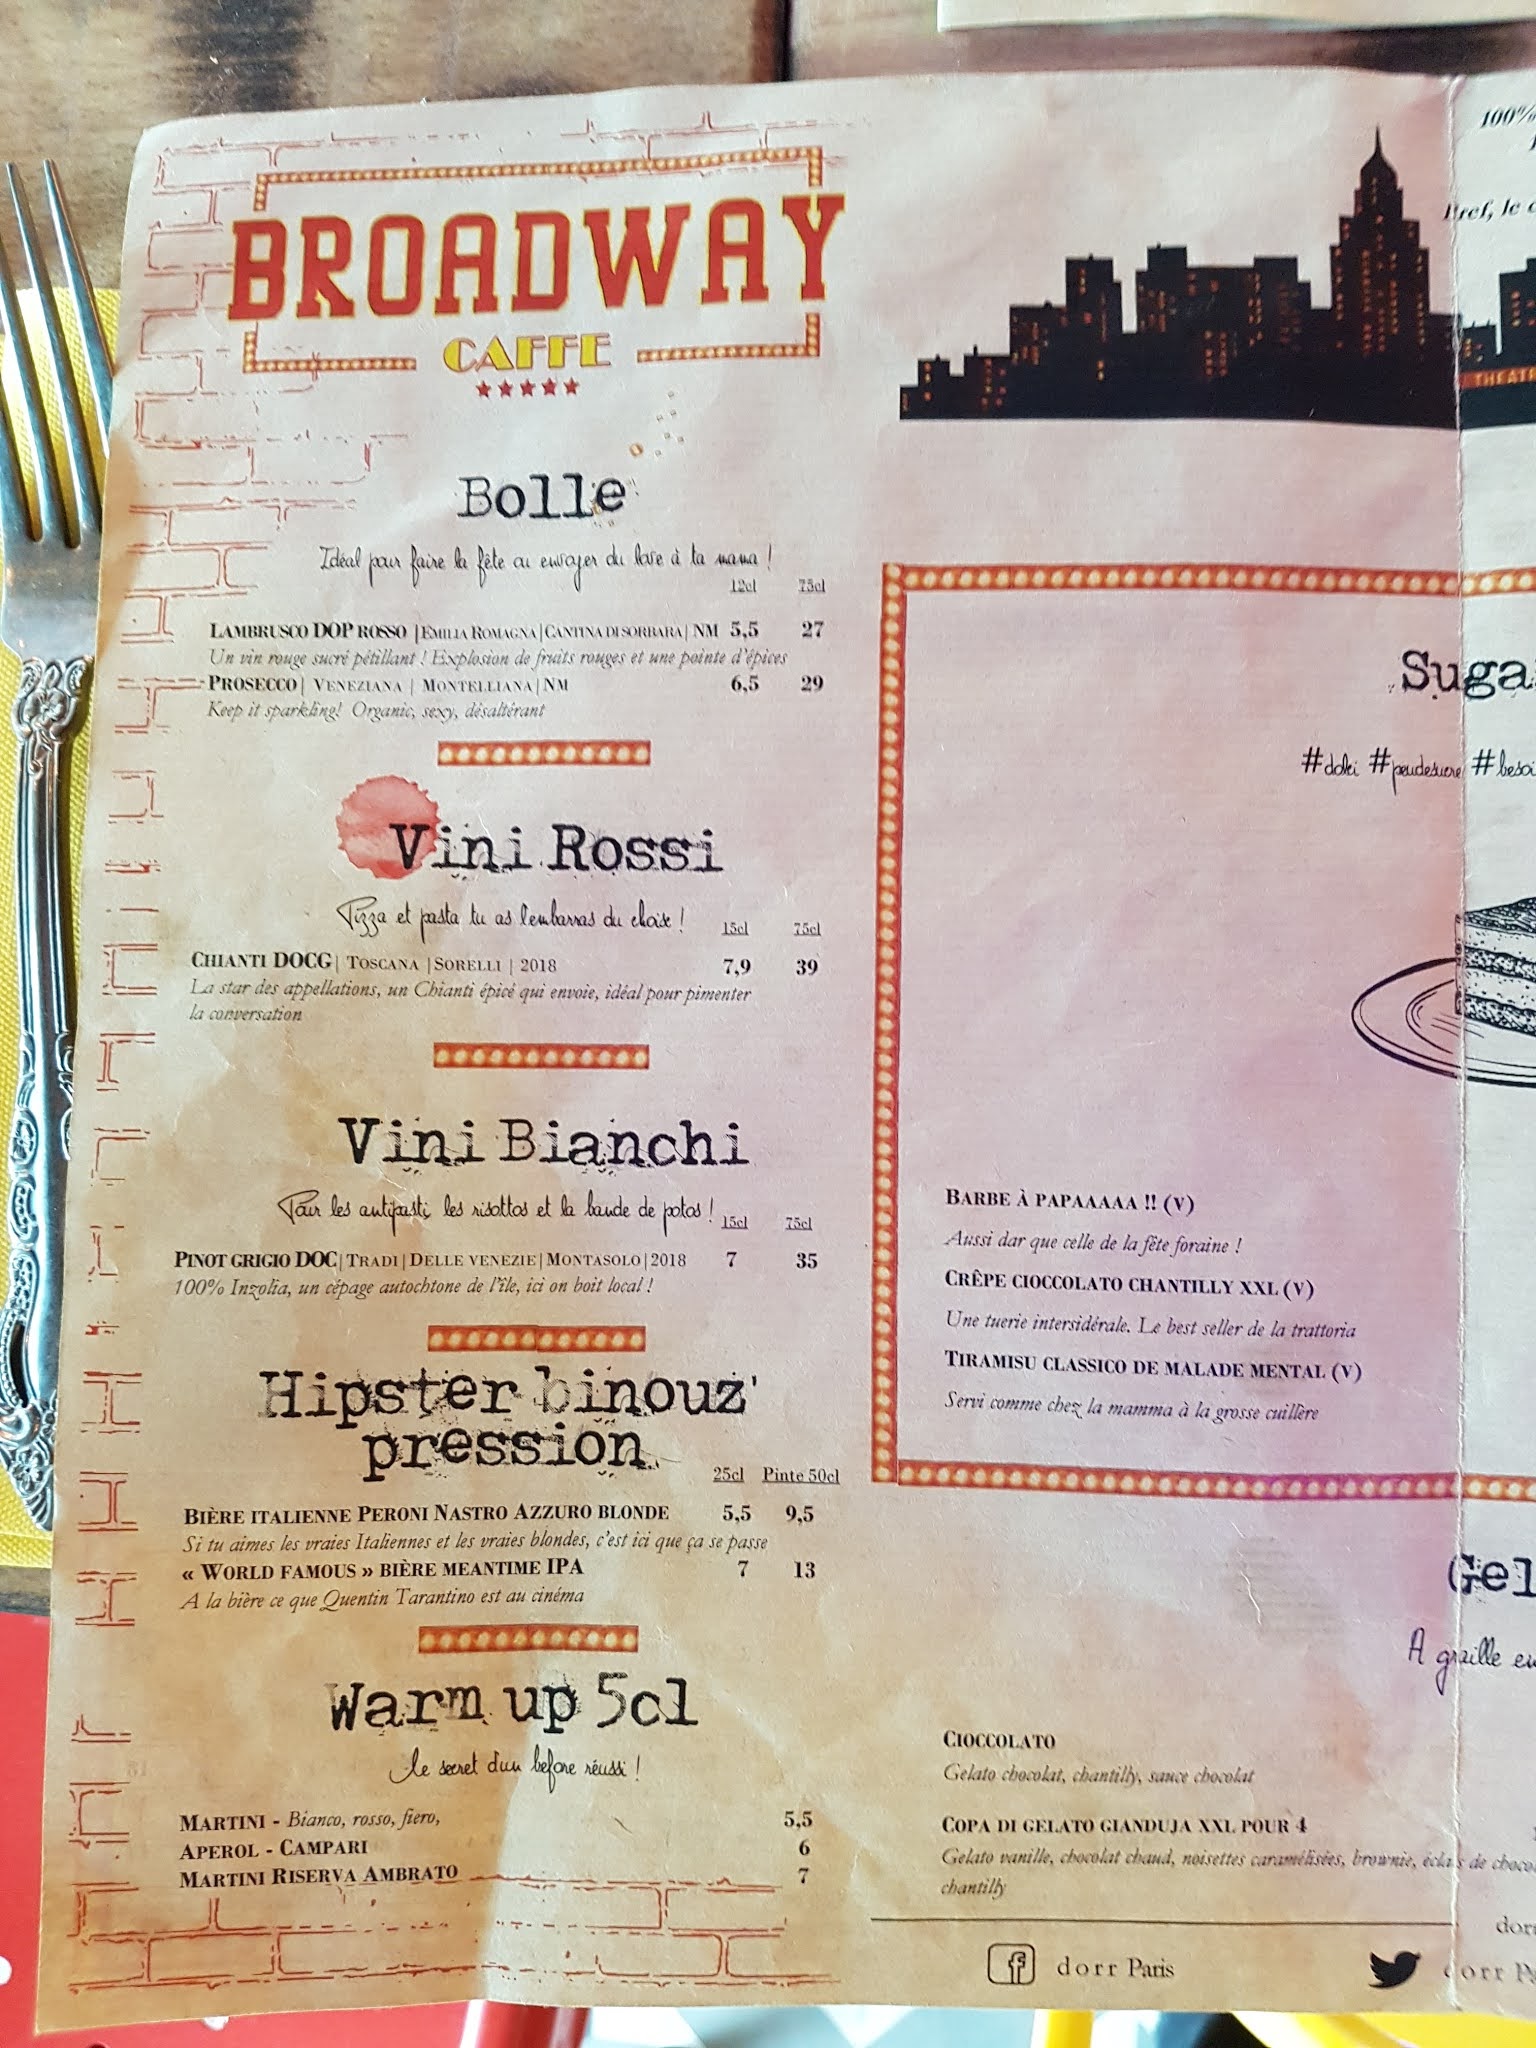 BROADWAY
CAFFE
Bolle
Idéal pour faire la fête ou envoyer du love à ta mama !
12cl 75cl
LAMBRUSCO DOP ROSSO |EMILIA ROMAGNA|CANTINA DI SORBARA| NM 5,5 27
Un vin rouge sucré pétillant ! Explosion de fruits rouges et une pointe d'épices
PROSECCO| VENEZIANA | MONTELLIANA|NM 6,5 29
Keep it sparkling! Organic, sexy, désaltérant
Vini Rossi
Pizza et pasta tu as l'embarras du choix !
15cl 75cl
CHIANTI DOCG| TOSCANA |SORELLI | 2018 7,9 39
La star des appellations, un Chianti épicé qui envoie, idéal pour pimenter
la conversation
Vini Bianchi
Pour les antipasti, les risottos et la bande de potos !
15cl 75cl
PINOT GRIGIO DOC|TRADI|DELLE VENEZIE|MONTASOLO|2018 7 35
100% Inzolia, un cépage autochtone de l'île, ici on boit local !
Hipster binouz'
pression
25cl Pinte 50cl
BIÈRE ITALIENNE PERONI NASTRO AZZURO BLONDE 5,5 9,5
Si tu aimes les vraies Italiennes et les vraies blondes, c'est ici que ça se passe
« WORLD FAMOUS » BIÈRE MEANTIME IPA 7 13
A la bière ce que Quentin Tarantino est au cinéma
Warm up 5cl
Le secret d'un before réussi !
MARTINI - Bianco, rosso, fiero, 5,5
APEROL - CAMPARI 6
MARTINI RISERVA AMBRATO 7
100%
Bref, le
THEATR
Suga
#dolci #peudesucre #besoi
BARBE À PAPAAAAA !! (V)
Aussi dar que celle de la fête foraine !
CRÊPE CIOCCOLATO CHANTILLY XXL (V)
Une tuerie intersidérale. Le best seller de la trattoria
TIRAMISU CLASSICO DE MALADE MENTAL (V)
Servi comme chez la mamma à la grosse cuillère
Gel
A graille en
CIOCCOLATO
Gelato chocolat, chantilly, sauce chocolat
COPA DI GELATO GIANDUJA XXL POUR 4
Gelato vanille, chocolat chaud, noisettes caramélisées, brownie, éclats de choco
chantilly
dorr
dorr Paris
dorr Pa